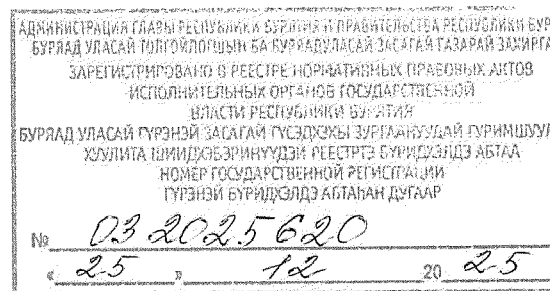 АДМИНИСТРАЦИЯ ГЛАВЫ РЕСПУБЛИКИ БУРЯТИЯ И ПРАВИТЕЛЬСТВА РЕСПУБЛИКИ БУР
БУРЯАД УЛАСАЙ ТОЛГОЙЛОГШЫН БА БУРЯАД УЛАСАЙ ЗАСАГАЙ ГАЗАРАЙ ЗАХИРГА
ЗАРЕГИСТРИРОВАНО В РЕЕСТРЕ НОРМАТИВНЫХ ПРАВОВЫХ АКТОВ
ИСПОЛНИТЕЛЬНЫХ ОРГАНОВ ГОСУДАРСТВЕННОЙ
ВЛАСТИ РЕСПУБЛИКИ БУРЯТИЯ
БУРЯАД УЛАСАЙ ГҮРЭНЭЙ ЗАСАГАЙ ГҮЙСЭДХЭХЫ ЗУРГААНУУДАЙ ГУРИМШУУЛ
ХУУЛИТА ШИИДХЭБЭРИНҮҮДЭЙ РЕЕСТРТЭ БҮРИДХЭЛДЭ АБТАА
НОМЕР ГОСУДАРСТВЕННОЙ РЕГИСТРАЦИИ
ГҮРЭНЭЙ БҮРИДХЭЛДЭ АБТАҺАН ДУГААР
№ 032025620
« 25 » 12 20 25